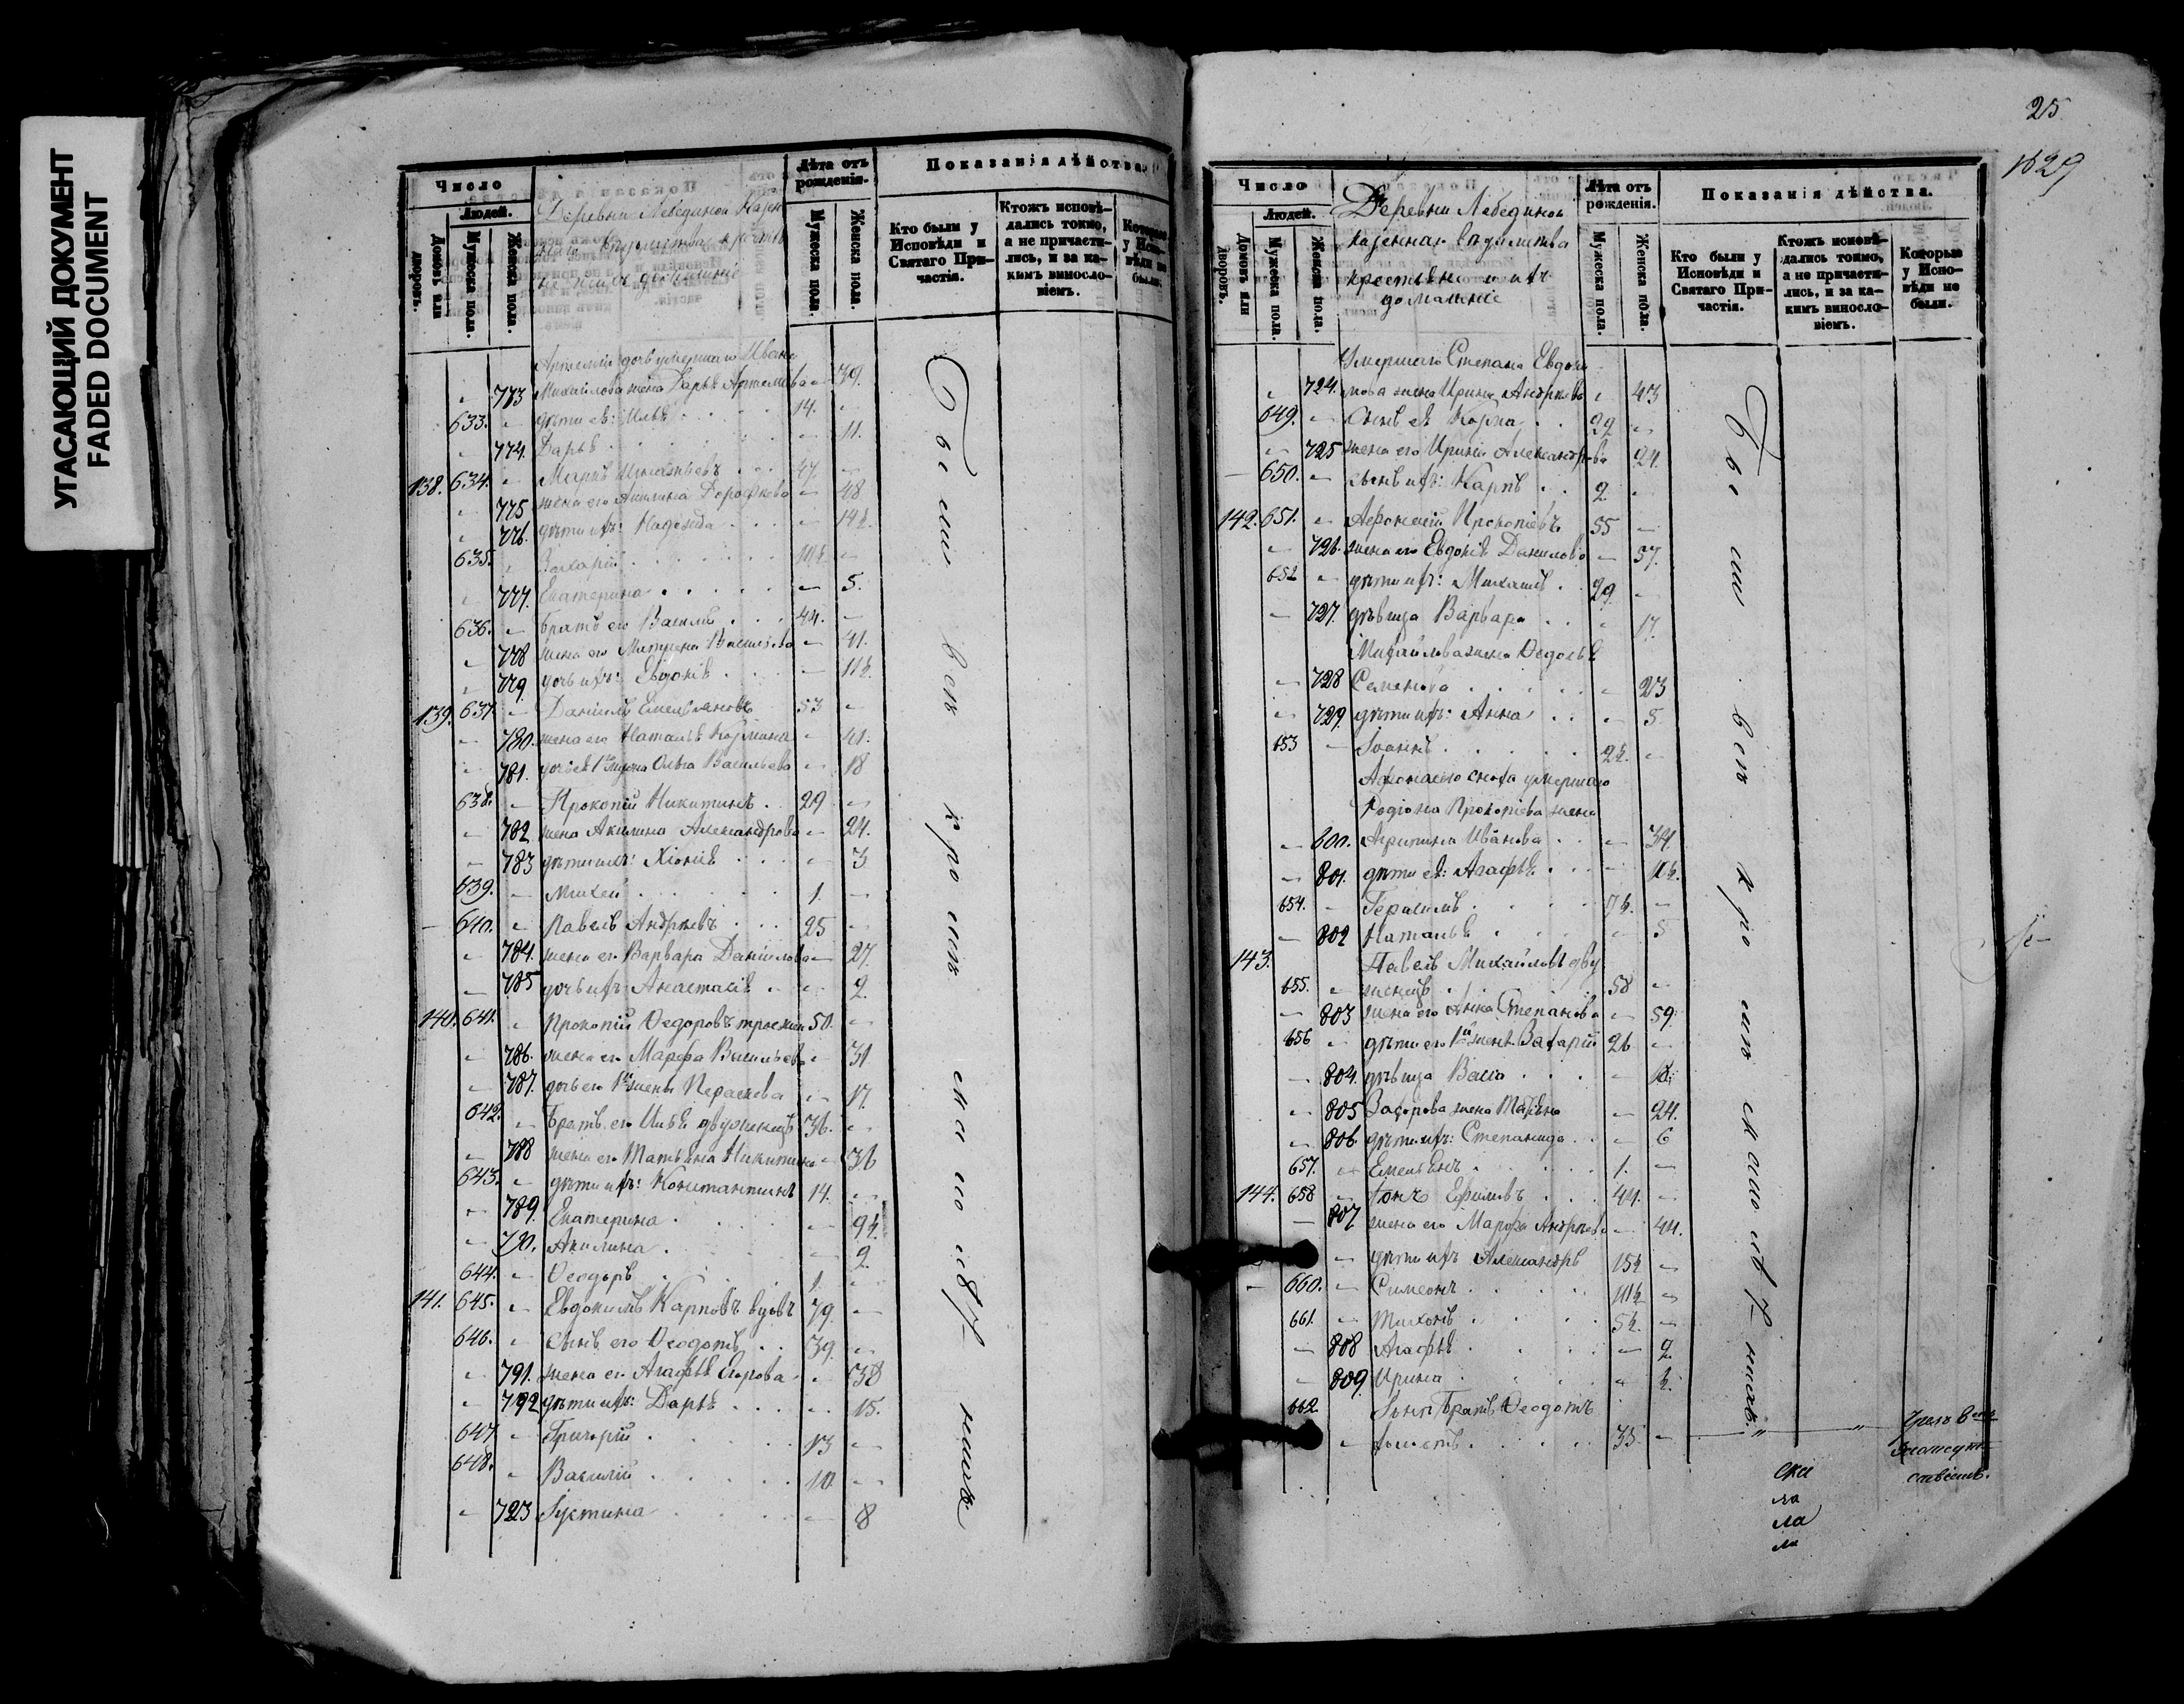 УГАСАЮЩИЙ ДОКУМЕНТ
FADED DOCUMENT
Число
Людей.
Домовъ или дворовъ.
Мужеска пола
Женска пола.
Деревни Лебединой
домашніе
Лѣта отъ рожденія.
Мужеска пола.
Женска пола.
Показанія дѣйства.
Кто были у Исповѣди и Святаго Причастія.
Ктожъ исповѣдались токмо, а не причастились, и за какимъ винословіемъ.
Которые у Исповѣди не были.
дочь умершаго Ивана
773 Михайлова жена Дарья Артемьева 39.
633. дѣти ея: Илья 14.
774. Дарья 11.
138. 634. Маркъ Игнатьевъ 47.
775 жена его Акилина Дорофеева 48
776. дѣти ихъ: Надежда 14½
635. Захарій 10½
777. Екатерина 5.
636. братъ его Василій 44.
778 жена его Матрена Васильева 41.
779. дочь ихъ: Евдокія 11½
139. 637. Даніилъ Емельяновъ 53
780. жена его Наталья Козмина 41.
781. дочь ея 1го мужа Ольга Васильева 18
638. Прокопій Никитинъ 29
782. жена Акилина Александрова 24.
783 дѣти ихъ: Хіонія 3
639. Михей 1.
640. Павелъ Андреевъ 25
784. жена его Варвара Даніилова 27.
785 дочь ихъ Анастасія 2.
140. 641. Прокопій Ѳедоровъ троежен 50.
786. жена его Марѳа Васильева 31
787. дочь его 1й жены Параскева 17.
642. Братъ его Илья двуженецъ 36.
788 жена его Татьяна Никитина 36
643. дѣти ихъ: Константинъ 14.
789. Екатерина 9½
790. Акилина 2.
644. Ѳеодоръ 1.
141. 645. Евдокимъ Карповъ вдовъ 79.
646. Сынъ его Ѳеодотъ 39.
791. жена его Агафья Егорова 38
792 дѣти ихъ: Дарья 15.
647. Григорій 13
648. Василій 10
723 Іустина 8
Были вси кромѣ малолѣтнихъ
25
1629
Число
Людей.
Домовъ или дворовъ.
Мужеска пола
Женска пола.
Деревни Лебединой
казеннаго вѣдомства
крестьяне и ихъ
домашніе
Лѣта отъ рожденія.
Мужеска пола.
Женска пола.
Показанія дѣйства.
Кто были у Исповѣди и Святаго Причастія.
Ктожъ исповѣдались токмо, а не причастились, и за какимъ винословіемъ.
Которые у Исповѣди не были.
Умершаго Степана Евдоки
724. мова жена Ирина Андреева 43
649. сынъ ея Козма 22
725 жена его Ирина Александрова 24.
650. сынъ ихъ: Карпъ 2
142. 651. Афонасій Прокопіевъ 55
726. жена его Евдокія Данилова 57.
652 дѣти ихъ: Михаилъ 29.
727. дѣвица Варвара 17.
Михайлова жена Ѳедосья
728 Семенова 23
729. дѣти ихъ: Анна 5
653 Іоаннъ 2½.
Афонасіево сноха умершаго
Родіона Прокопіева жена
800. Агрипина Иванова 34.
801. дѣти ея: Агафья
654. Герасимъ 7½.
802 Наталья 5
143. Павелъ Михайловъ дву
655. женецъ 58
803 жена его Анна Степанова 59.
656 дѣти его 1й жены Захарій 26
804. дѣвица Васса
805 Захарова жена Татьяна 24.
806. дѣти ихъ: Степанида 6
657. Емельянъ 1.
144. 658 Іона Ефимовъ 44.
807 жена его Марѳа Андреева 44.
дѣти ихъ Александръ 15½
660. Симеонъ 10½
661. Тихонъ 5½.
808 Агафья 2.
809. Ирина ½.
662 Іоны братъ Ѳеодотъ
35.
Были вси кромѣ малолѣтнихъ